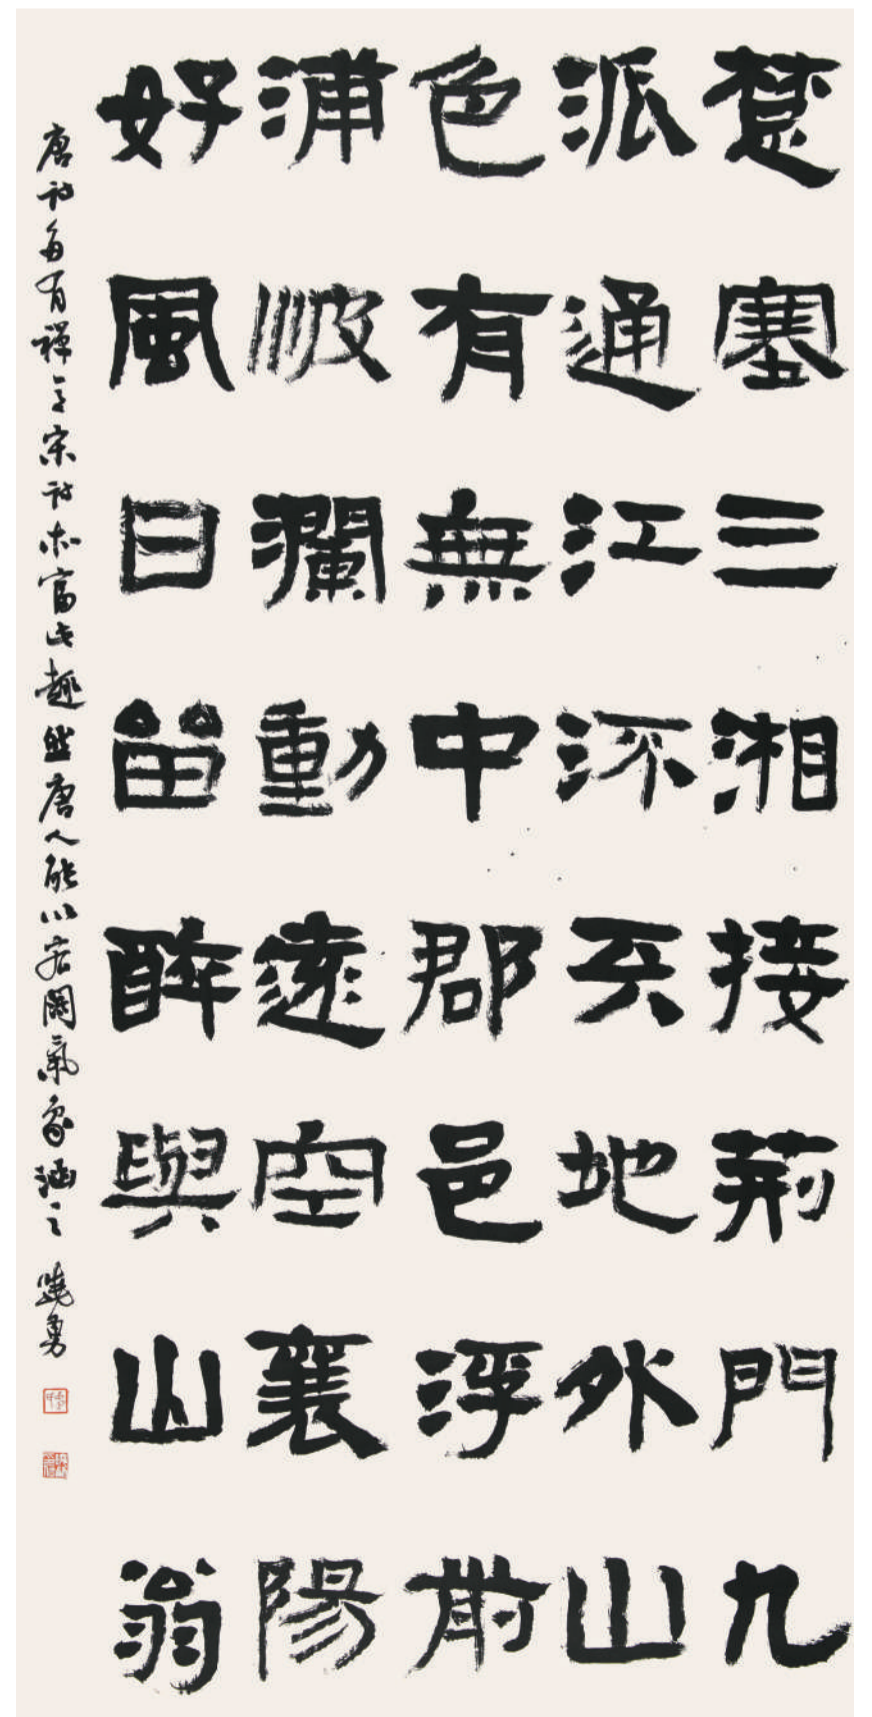 楚塞三湘接荊門九
派通江流天地外山
色有無中郡邑浮前
浦波瀾動遠空襄陽
好風日留醉與山翁
唐詩每有禪意宋詩亦富此趣然唐人能以宏闊氣象涵之 曉勇